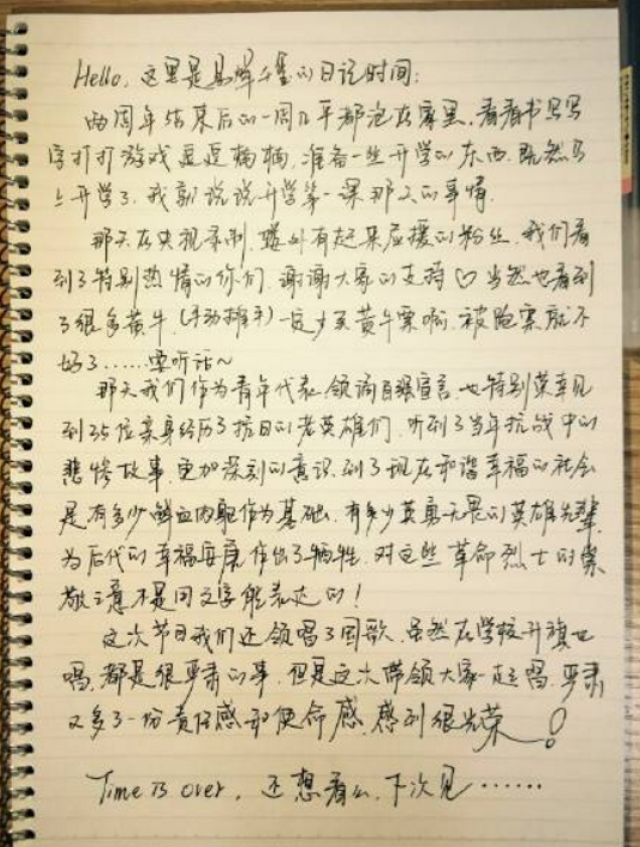 Hello, 这里是易烊千玺的日记时间:
两周年结束后的一周几乎都泡在家里,看看书写写
字打打游戏逗逗楠楠,准备一些开学的东西,既然马
上开学了,我就说说开学第一课那天的事情.
那天在央视录制,楼外有赶来应援的粉丝,我们看
到了特别热情的你们,谢谢大家的支持♡当然也看到
了很多黄牛,(手动挥手)一定少买黄牛票啊,被跑票就不
好了……要听话~
那天我们作为青年代表,领诵自强宣言,也特别荣幸见
到35位亲身经历了抗日的老英雄们,听到了当年抗战中的
悲惨故事,更加深刻的意识到了现在和谐幸福的社会
是有多少鲜血肉躯作为基础,有多少英勇无畏的英雄先辈,
为后代的幸福安康作出了牺牲,对这些革命烈士的崇
敬之意不是同文字能表达的!
这次节目我们还领唱了国歌,虽然在学校升旗也
唱,都是很严肃的事,但是这次带领大家一起唱,严肃
又多了一份责任感和使命感,感到很光荣!
Time is over, 还想看么,下次见……